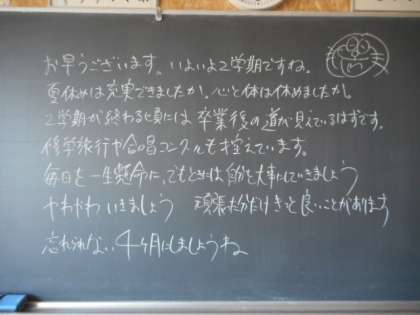 お早うございます。いよいよ2学期ですね。
夏休みは充実できましたか。心と体は休めましたか。
2学期が終わる頃には卒業後の道が見えているはずです。
修学旅行や合唱コンクールも控えています。
毎日を一生懸命に、でもときには自分を大事にしていきましょう
やわやわいきましょう 頑張った分だけきっと良いことがあります
忘れられない4ヶ月にしましょうね